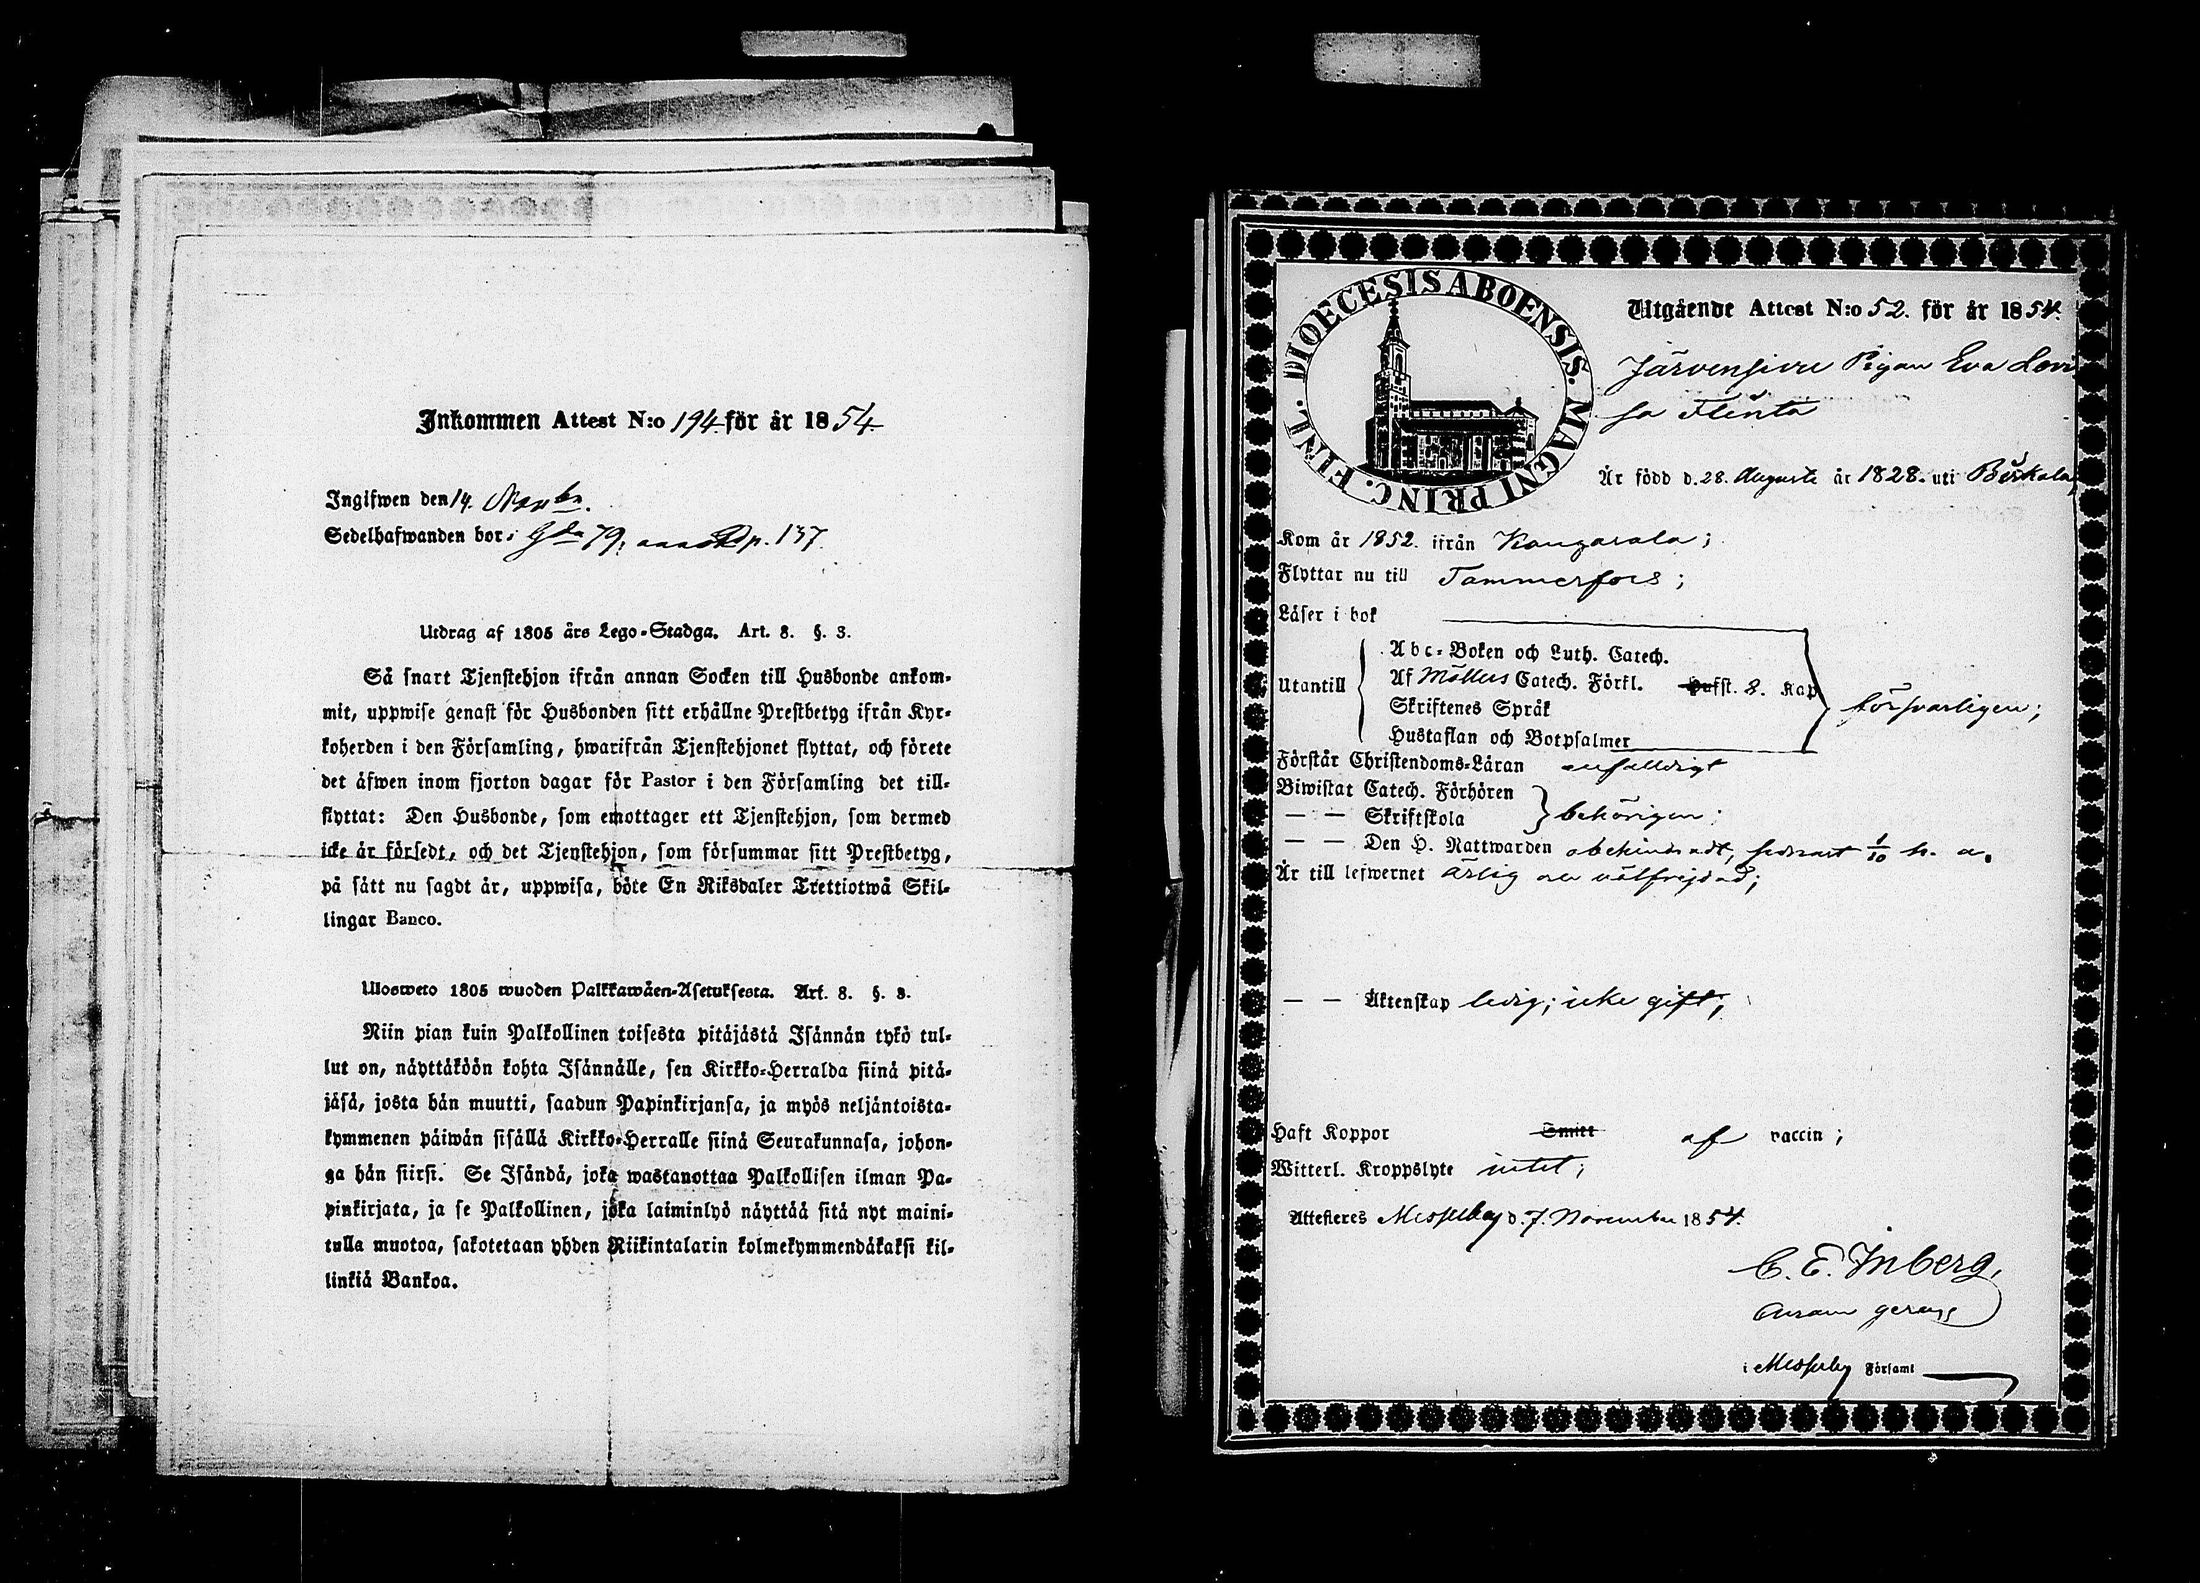 Inkommen Attest N:o 194 för år 1854.
Ingifwen den 14. Novbr.
Sedelhafwanden bor i Gda 79, p. 137.
Utdrag af 1805 års Lego-Stadga. Art. 8. §. 3.
Så snart Tjenstehjon ifrån annan Socken till Husbonde ankom-
mit, uppwise genast för Husbonden sitt erhållne Prestbetyg ifrån Kyr-
koherden i den Församling, hwarifrån Tjenstehjonet flyttat, och förete
det äfwen inom fjorton dagar för Pastor i den Församling det till-
flyttat: Den Husbonde, som emottager ett Tjenstehjon, som dermed
icke är försedt, och det Tjenstehjon, som försummar sitt Prestbetyg,
på sätt nu sagdt är, uppwisa, böte En Riksdaler Trettiotwå Skil-
lingar Banco.
Ulosweto 1805 wuoden Palkkawäen-Asetuksesta. Art. 8. §. 3.
Niin pian kuin Palkollinen toisesta pitäjästä Isännän tykö tul-
lut on, näyttäköön kohta Isännälle, sen Kirkko-Herralda siinä pitä-
jäsä, josta hän muutti, saadun Papinkirjansa, ja myös neljäntoista-
kymmenen päiwän sisällä Kirkko-Herralle siinä Seurakunnasa, johon-
ga hän siirsi. Se Isändä, joka wastanottaa Palkollisen ilman Pa-
pinkirjata, ja se Palkollinen, joka laiminlyö näyttää sitä nyt maini-
tulla muotoa, sakotetaan yhden Riikintalarin kolmekymmendäkaksi kil-
linkiä Bankoa.
DIOECESIS ABOENSIS. MAGNI PRINC. FINL.
Utgående Attest N:o 52. för år 1854.
Järvensivu Pigan Eva Lovi
sa Flinta
Är född d. 28. Augusti år 1828. uti Birkala,
Kom år 1852. ifrån Kangasala;
Flyttar nu till Tammerfors;
Läser i bok
Utantill
Abc-Boken och Luth. Catech.
Af Möllers Catech. Förkl. Hufst. 8. Kap
Skriftenes Språk
Hustaflan och Botpsalmer
försvarligen;
Förstår Christendoms-Läran enfaldigt
Biwistat Catech. Förhören
— — Skriftskola
behörigen;
— — Den H. Nattwarden obehindradt, senast 1/10 h. a.
Är till lefwernet ärlig och välfrejdad;
— — Äktenskap ledig; icke gift;
Haft Koppor Smitt af vaccin;
Witterl. Kroppslyte intet;
Attesteres Messuby d. 7. November 1854.
C. E. Inberg,
Curam gerens
i Messuby Församl